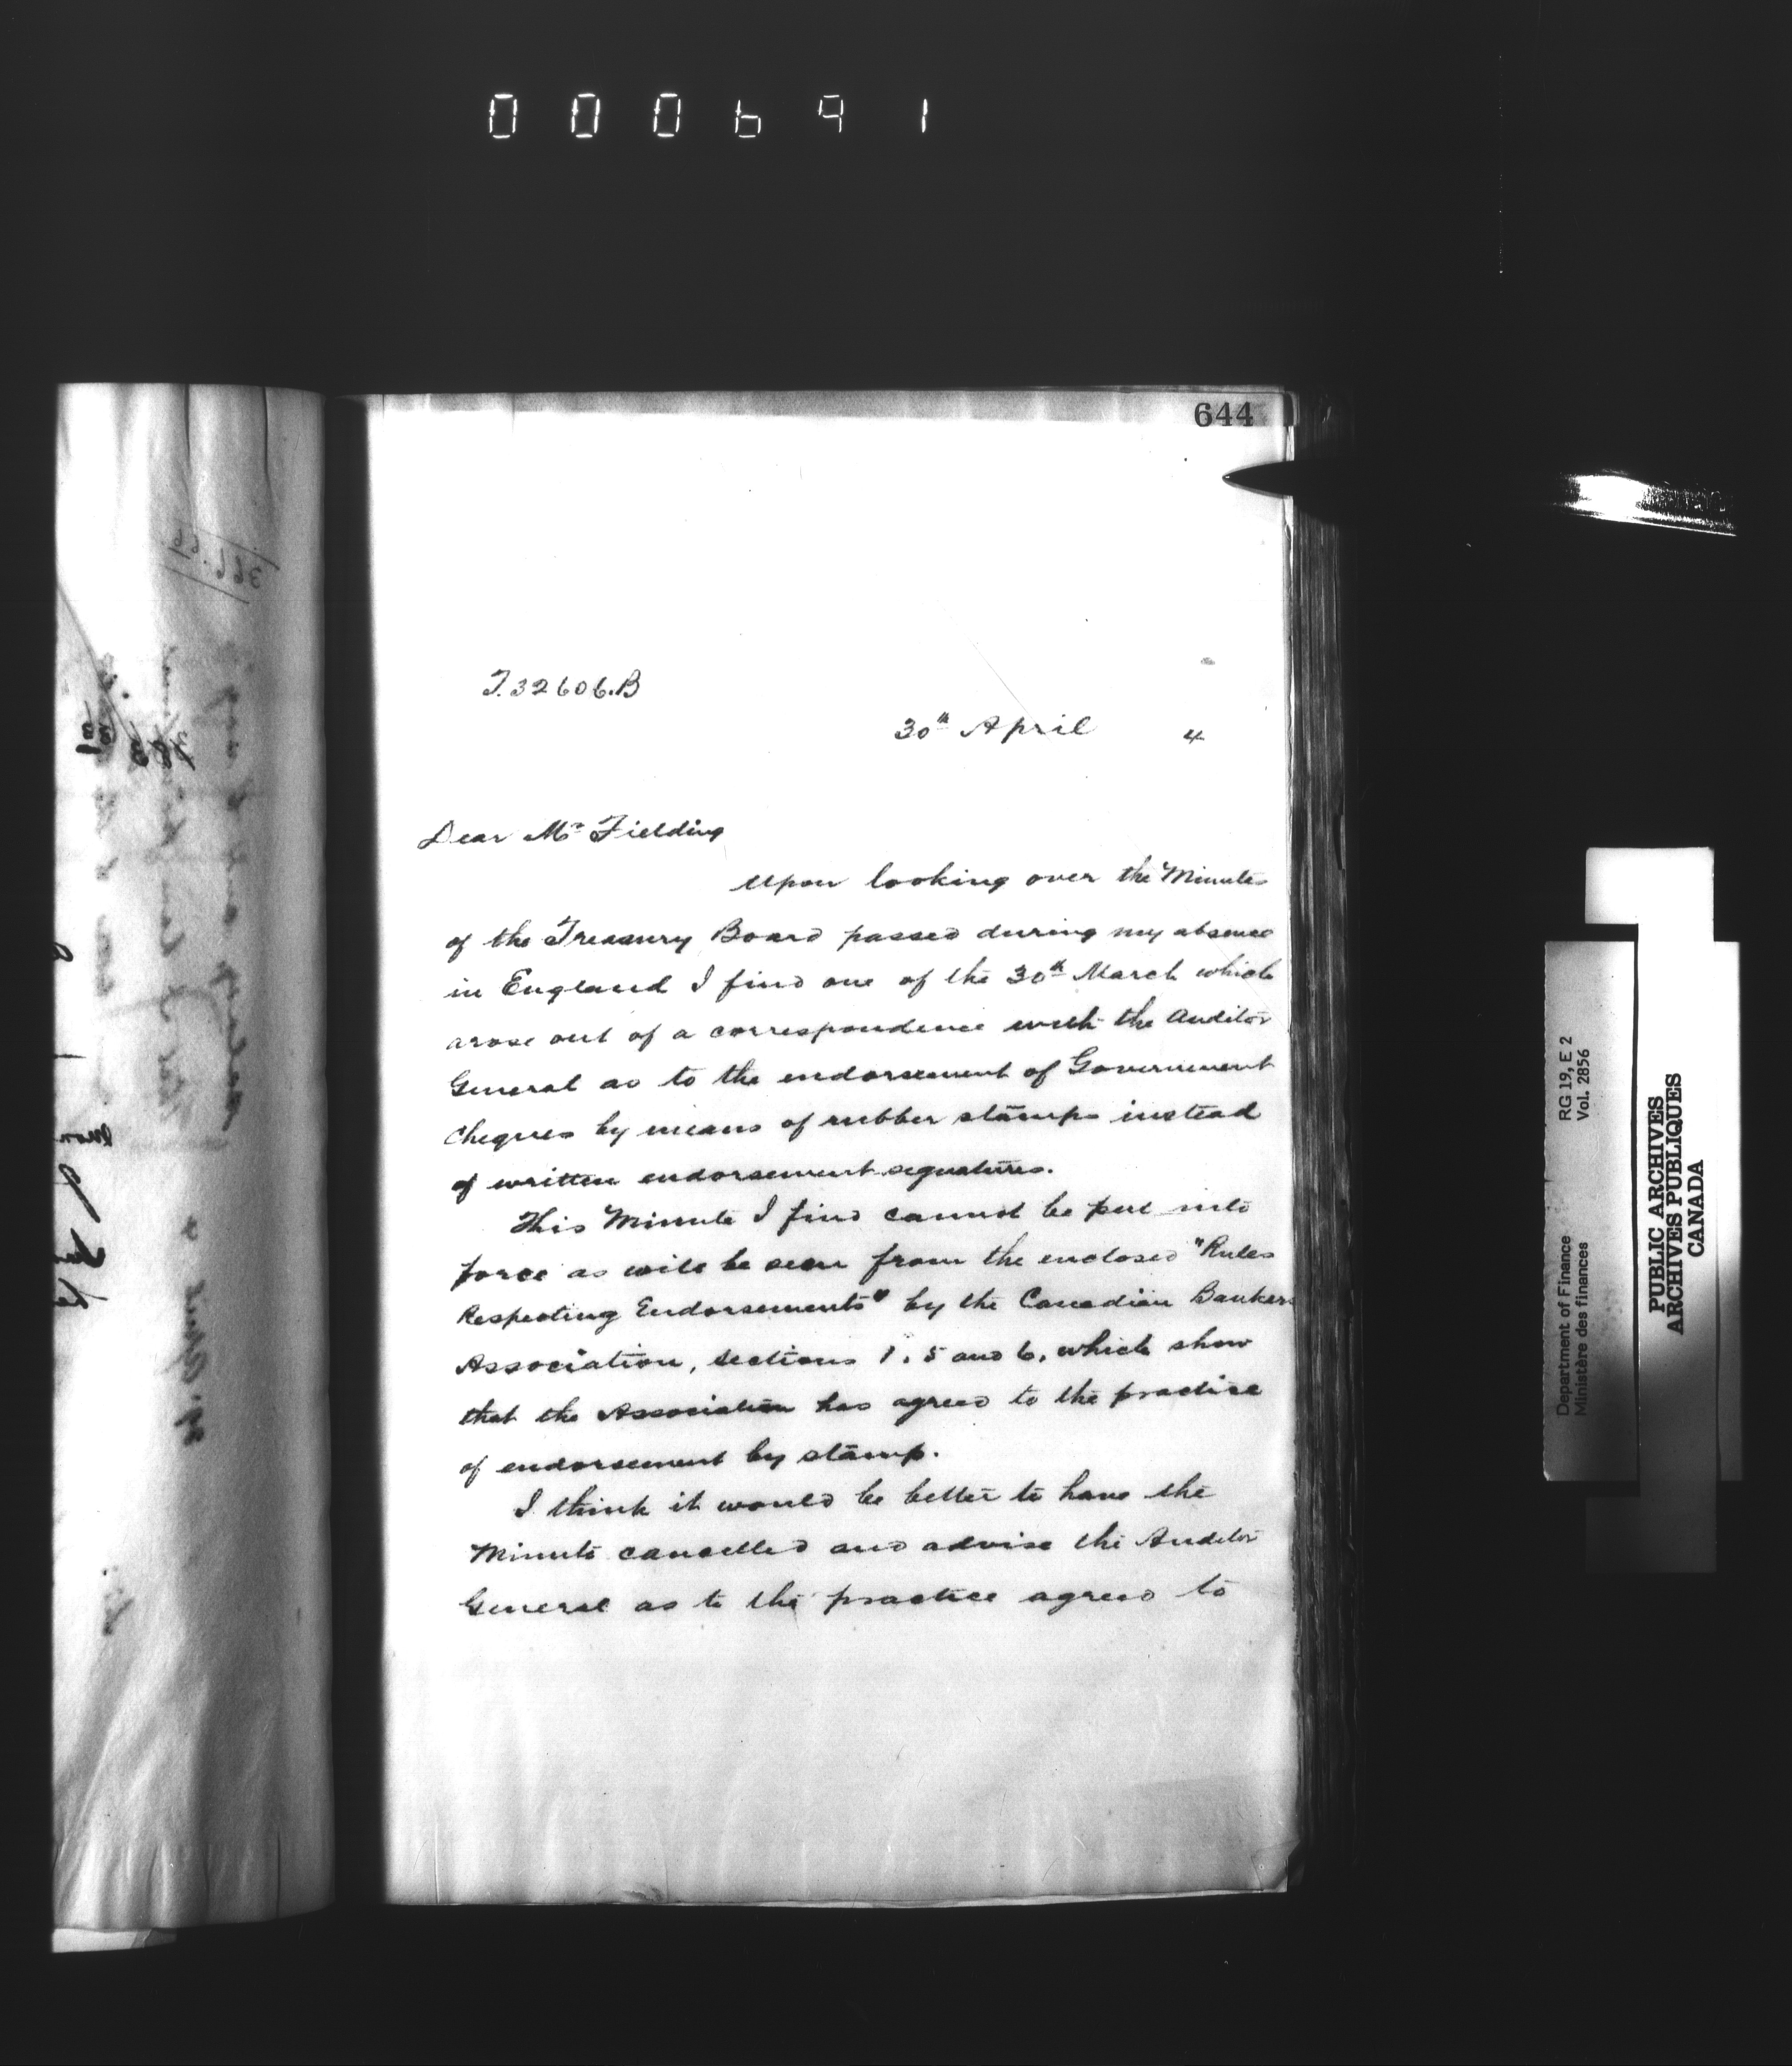 000691
644
T.32606.B
30th April 4
Dear Mr Fielding
Upon looking over the Minutes
of the Treasury Board passed during my absence
in England I find one of the 30th March which
arose out of a correspondence with the Auditor
General as to the endorsement of Government
Cheques by means of rubber stamps instead
of written endorsement signatures.
This Minute I find cannot be put into
force as will be seen from the enclosed "Rules
Respecting Endorsements" by the Canadian Bankers
Association, sections 1, 5 and 6, which show
that the Association has agreed to the practice
of endorsement by stamp.
I think it would be better to have the
Minute cancelled and advise the Auditor
General as to the practice agreed to
Department of Finance RG 19, E 2
Ministère des finances Vol. 2856
PUBLIC ARCHIVES
ARCHIVES PUBLIQUES
CANADA